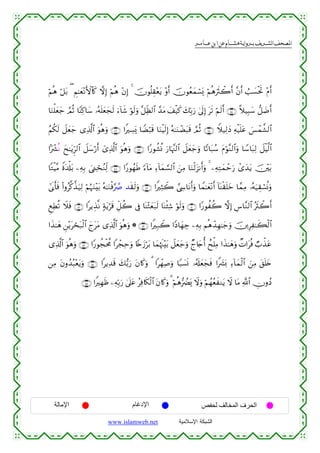 المصحف الشريف برواية هشام عن ابن عامر
أَمْ تَحْسَبُ أَنَّ أَكْثَرَهُمْ يَسْمَعُونَ أَوْ يَعْقِلُونَ إِنْ هُمْ إِلَّا كَالْأَنْعَٰمِ بَلْ هُمْ
أَضَلُّ سَبِيلًا أَلَمْ تَرَ إِلَىٰ رَبِّكَ كَيْفَ مَدَّ الظِّلَّ وَلَوْ شَاءَ لَجَعَلَهُ سَاكِنًا ثُمَّ جَعَلْنَا
الشَّمْسَ عَلَيْهِ دَلِيلًا ثُمَّ قَبَضْنَٰهُ إِلَيْنَا قَبْضًا يَسِيرًا وَهُوَ الَّذِي جَعَلَ لَكُمُ
الَّيْلَ لِبَاسًا وَالنَّوْمَ سُبَاتًا وَجَعَلَ النَّهَارَ نُشُورًا وَهُوَ الَّذِي أَرْسَلَ الرِّيَٰحَ نُشْرًا
بَيْنَ يَدَيْ رَحْمَتِهِ وَأَنزَلْنَا مِنَ السَّمَاءِ مَاءً طَهُورًا لِنُحْيِيَ بِهِ بَلْدَةً
مَيْتًا وَنُسْقِيَهُ مِمَّا خَلَقْنَا أَنْعَٰمًا وَأَنَاسِيَّ كَثِيرًا وَلَقَد صَّرَّفْنَٰهُ بَيْنَهُمْ لِيَذَّكَّرُوا فَأَبَىٰ
أَكْثَرُ النَّاسِ إِلَّا كُفُورًا وَلَوْ شِئْنَا لَبَعَثْنَا فِي كُلِّ قَرْيَةٍ نَذِيرًا فَلَا تُطِعِ
الْكَٰفِرِينَ وَجَٰهِدْهُم بِهِ جِهَادًا كَبِيرًا وَهُوَ الَّذِي مَرَجَ الْبَحْرَيْنِ هَٰذَا
عَذْبٌ فُرَاتٌ وَهَٰذَا مِلْحٌ أُجَاجٌ وَجَعَلَ بَيْنَهُمَا بَرْزَخًا وَحِجْرًا مَحْجُورًا وَهُوَ الَّذِي
خَلَقَ مِنَ الْمَاءِ بَشَرًا فَجَعَلَهُ نَسَبًا وَصِهْرًا وَكَانَ رَبُّكَ قَدِيرًا وَيَعْبُدُونَ مِن
دُونِ اللَّهِ مَا لَا يَنفَعُهُمْ وَلَا يَضُرُّهُمْ وَكَانَ الْكَافِرُ عَلَىٰ رَبِّهِ ظَهِيرًا
الحرف المخالف لحفص الإدغام الإمالة
الشبكة الإسلامية www.islamweb.net